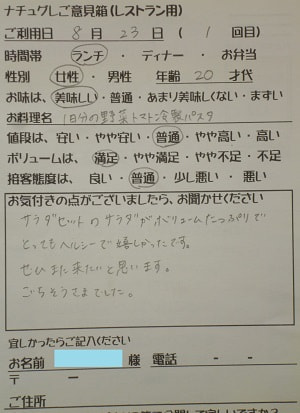 ナチュグレご意見箱(レストラン用)
ご利用日 8月 23日 ( 1 回目)
時間帯 ランチ ・ ディナー ・ お弁当
性別 女性 ・ 男性 年齢 20 才代
お味は、美味しい・普通・あまり美味しくない・まずい
お料理名 1日分の野菜トマト冷製パスタ
値段は、安い・やや安い・普通・やや高い・高い
ボリュームは、満足・やや満足・やや不足・不足
接客態度は、良い・普通・少し悪い・悪い
お気付きの点がございましたら、お聞かせください
サラダセットのサラダがボリュームたっぷりで
とってもヘルシーで嬉しかったです。
ぜひまた来たいと思います。
ごちそうさまでした。
宜しかったらご記入ください
お名前 様 電話 - -
〒 ー
ご住所